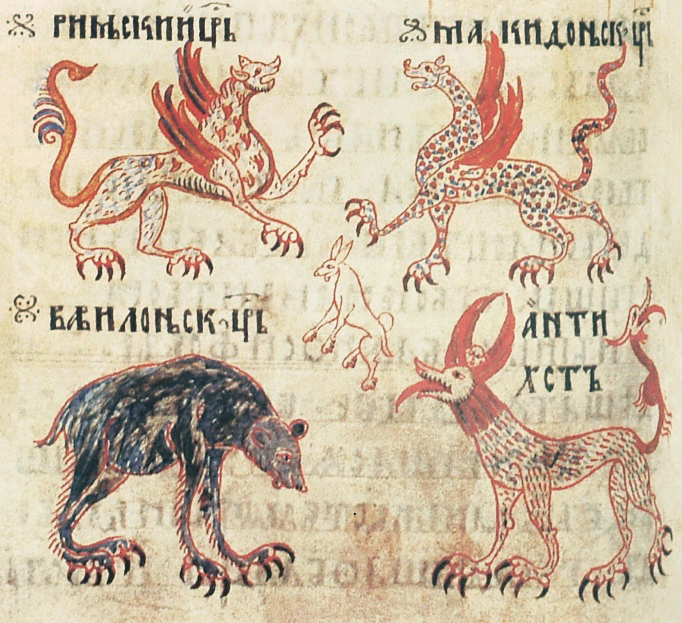 римьскиицрь
макидоньск црⷭ҇
вавилоньск црь
анти
хстъ